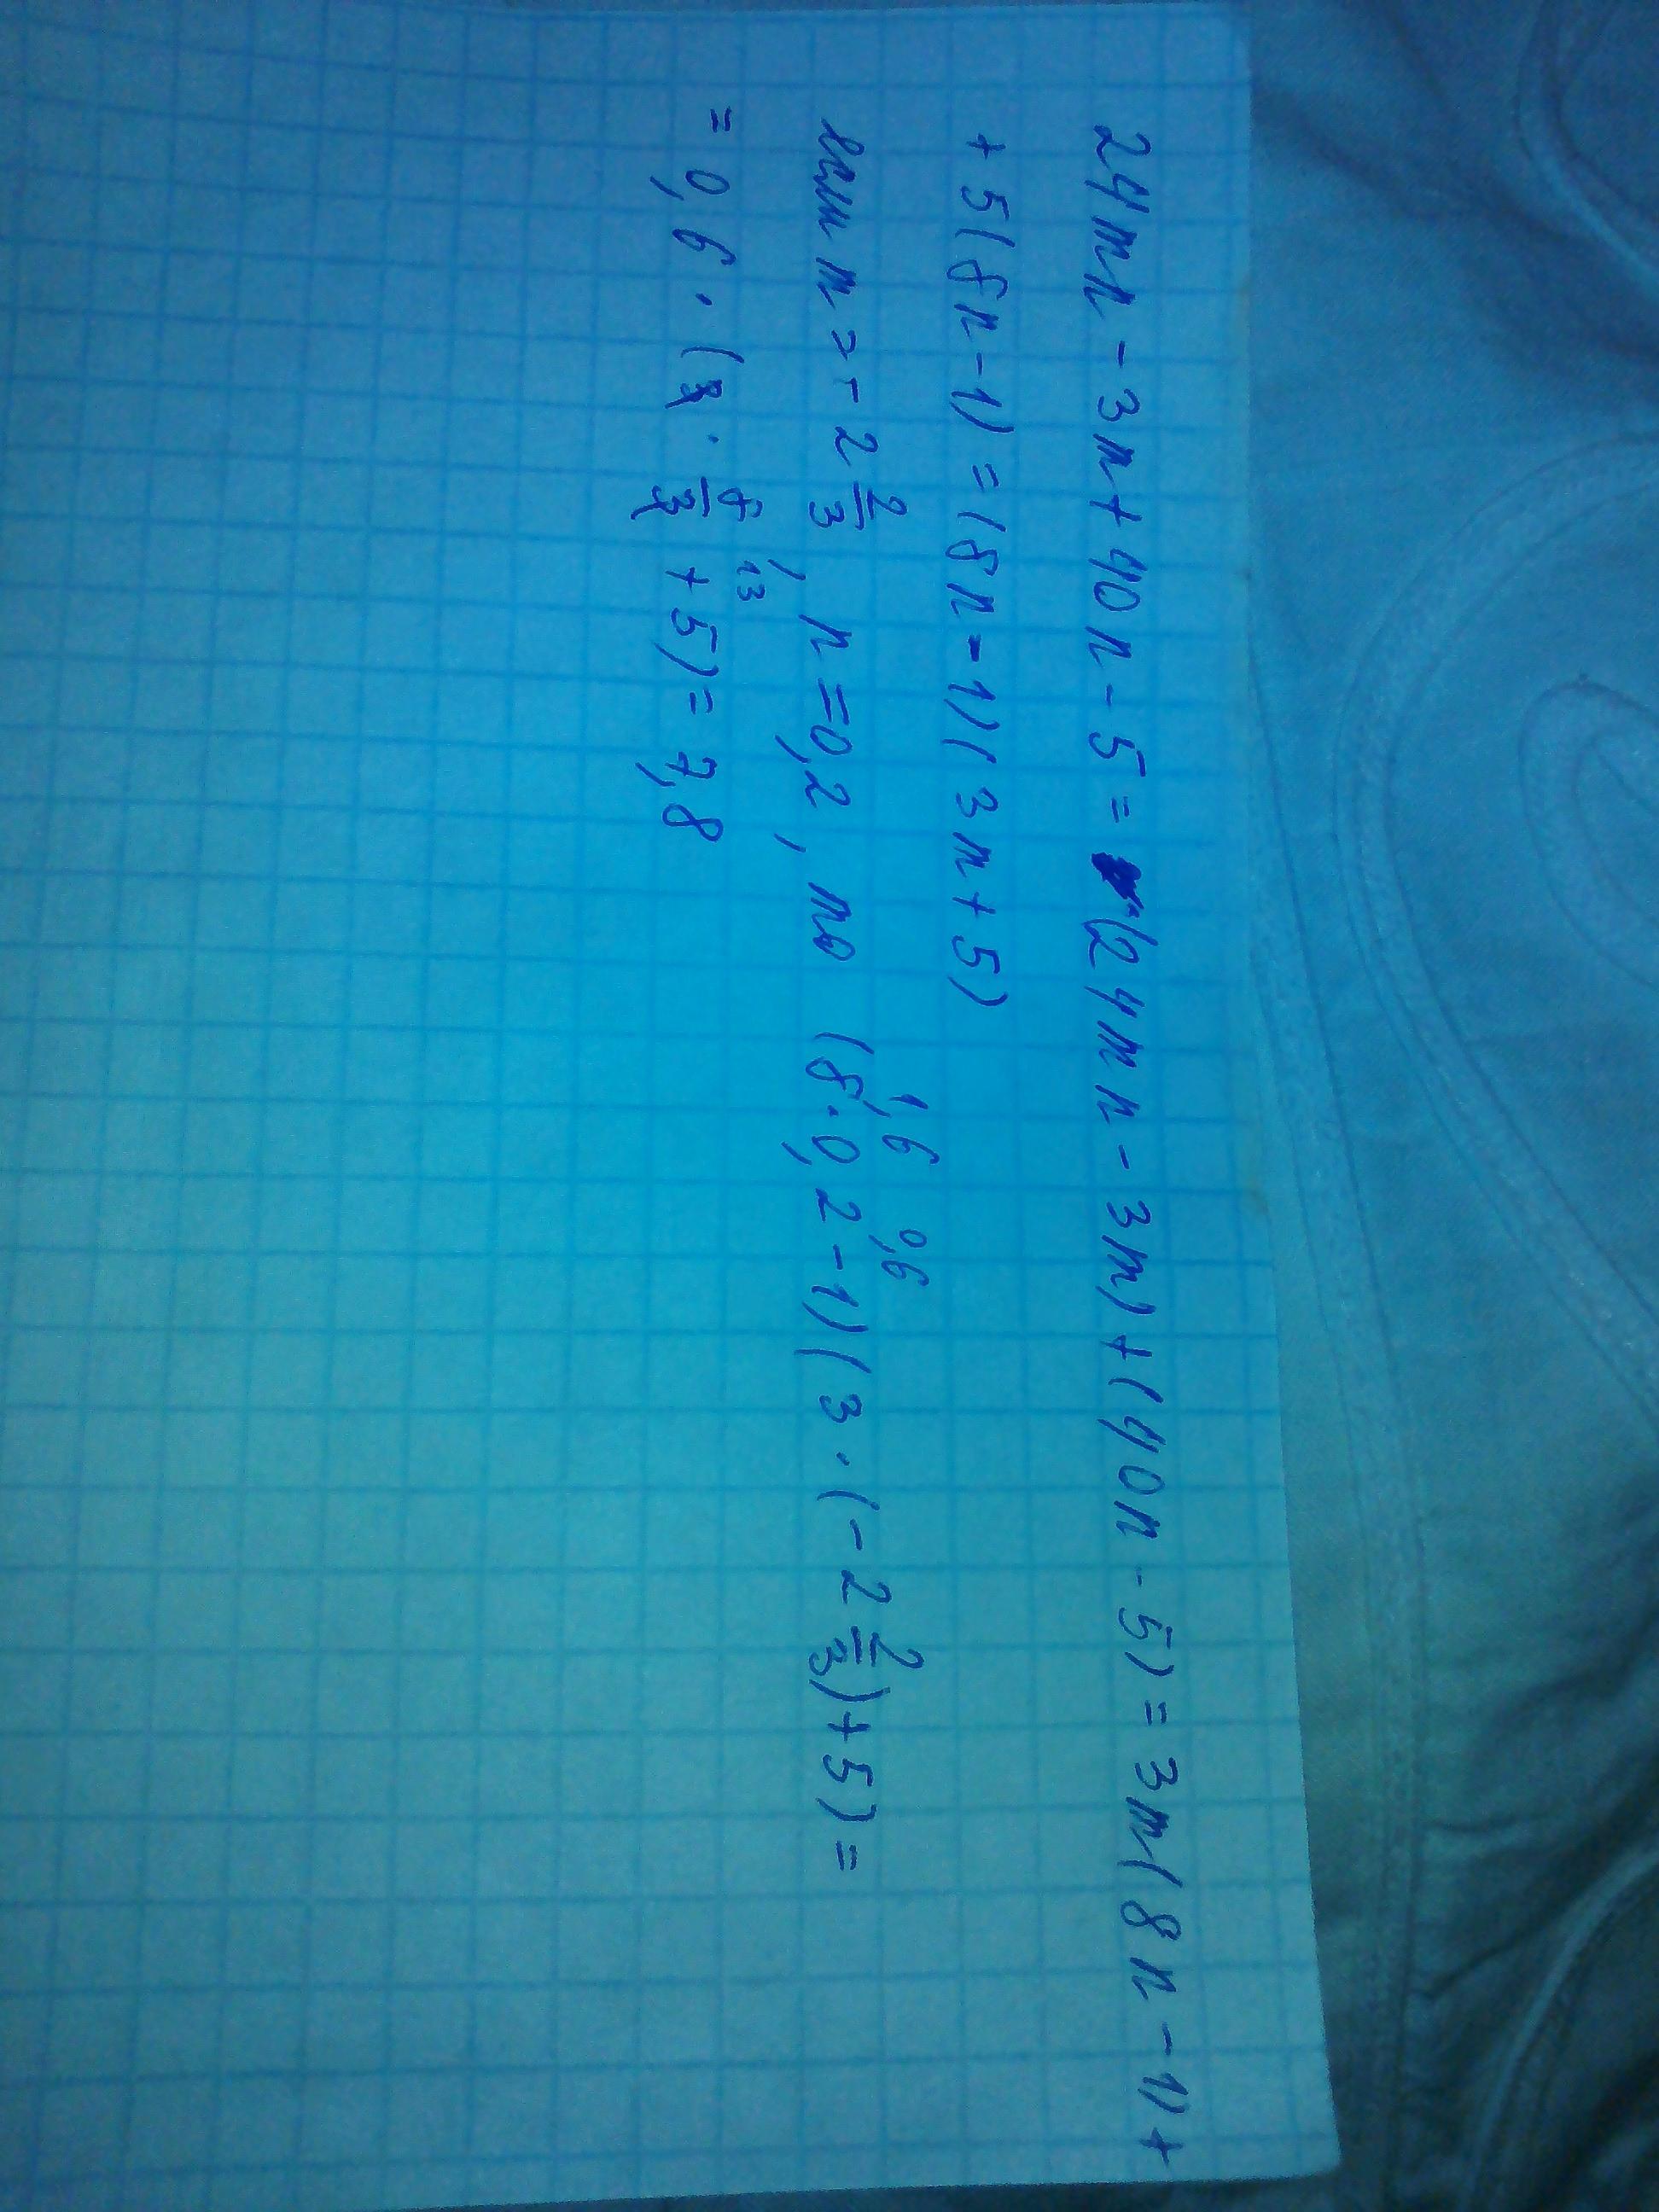 24mn - 3m + 40n - 5 = (24mn - 3m) + (40n - 5) = 3m(8n - 1) +
+ 5(8n - 1) = (8n - 1)(3m + 5)
1,6 0,6
если m = - 2 2/3, n = 0,2, то (8 · 0,2 - 1)(3 · (- 2 2/3) + 5) =
13
= 0,6 · (3 · 8/3 + 5) = 7,8